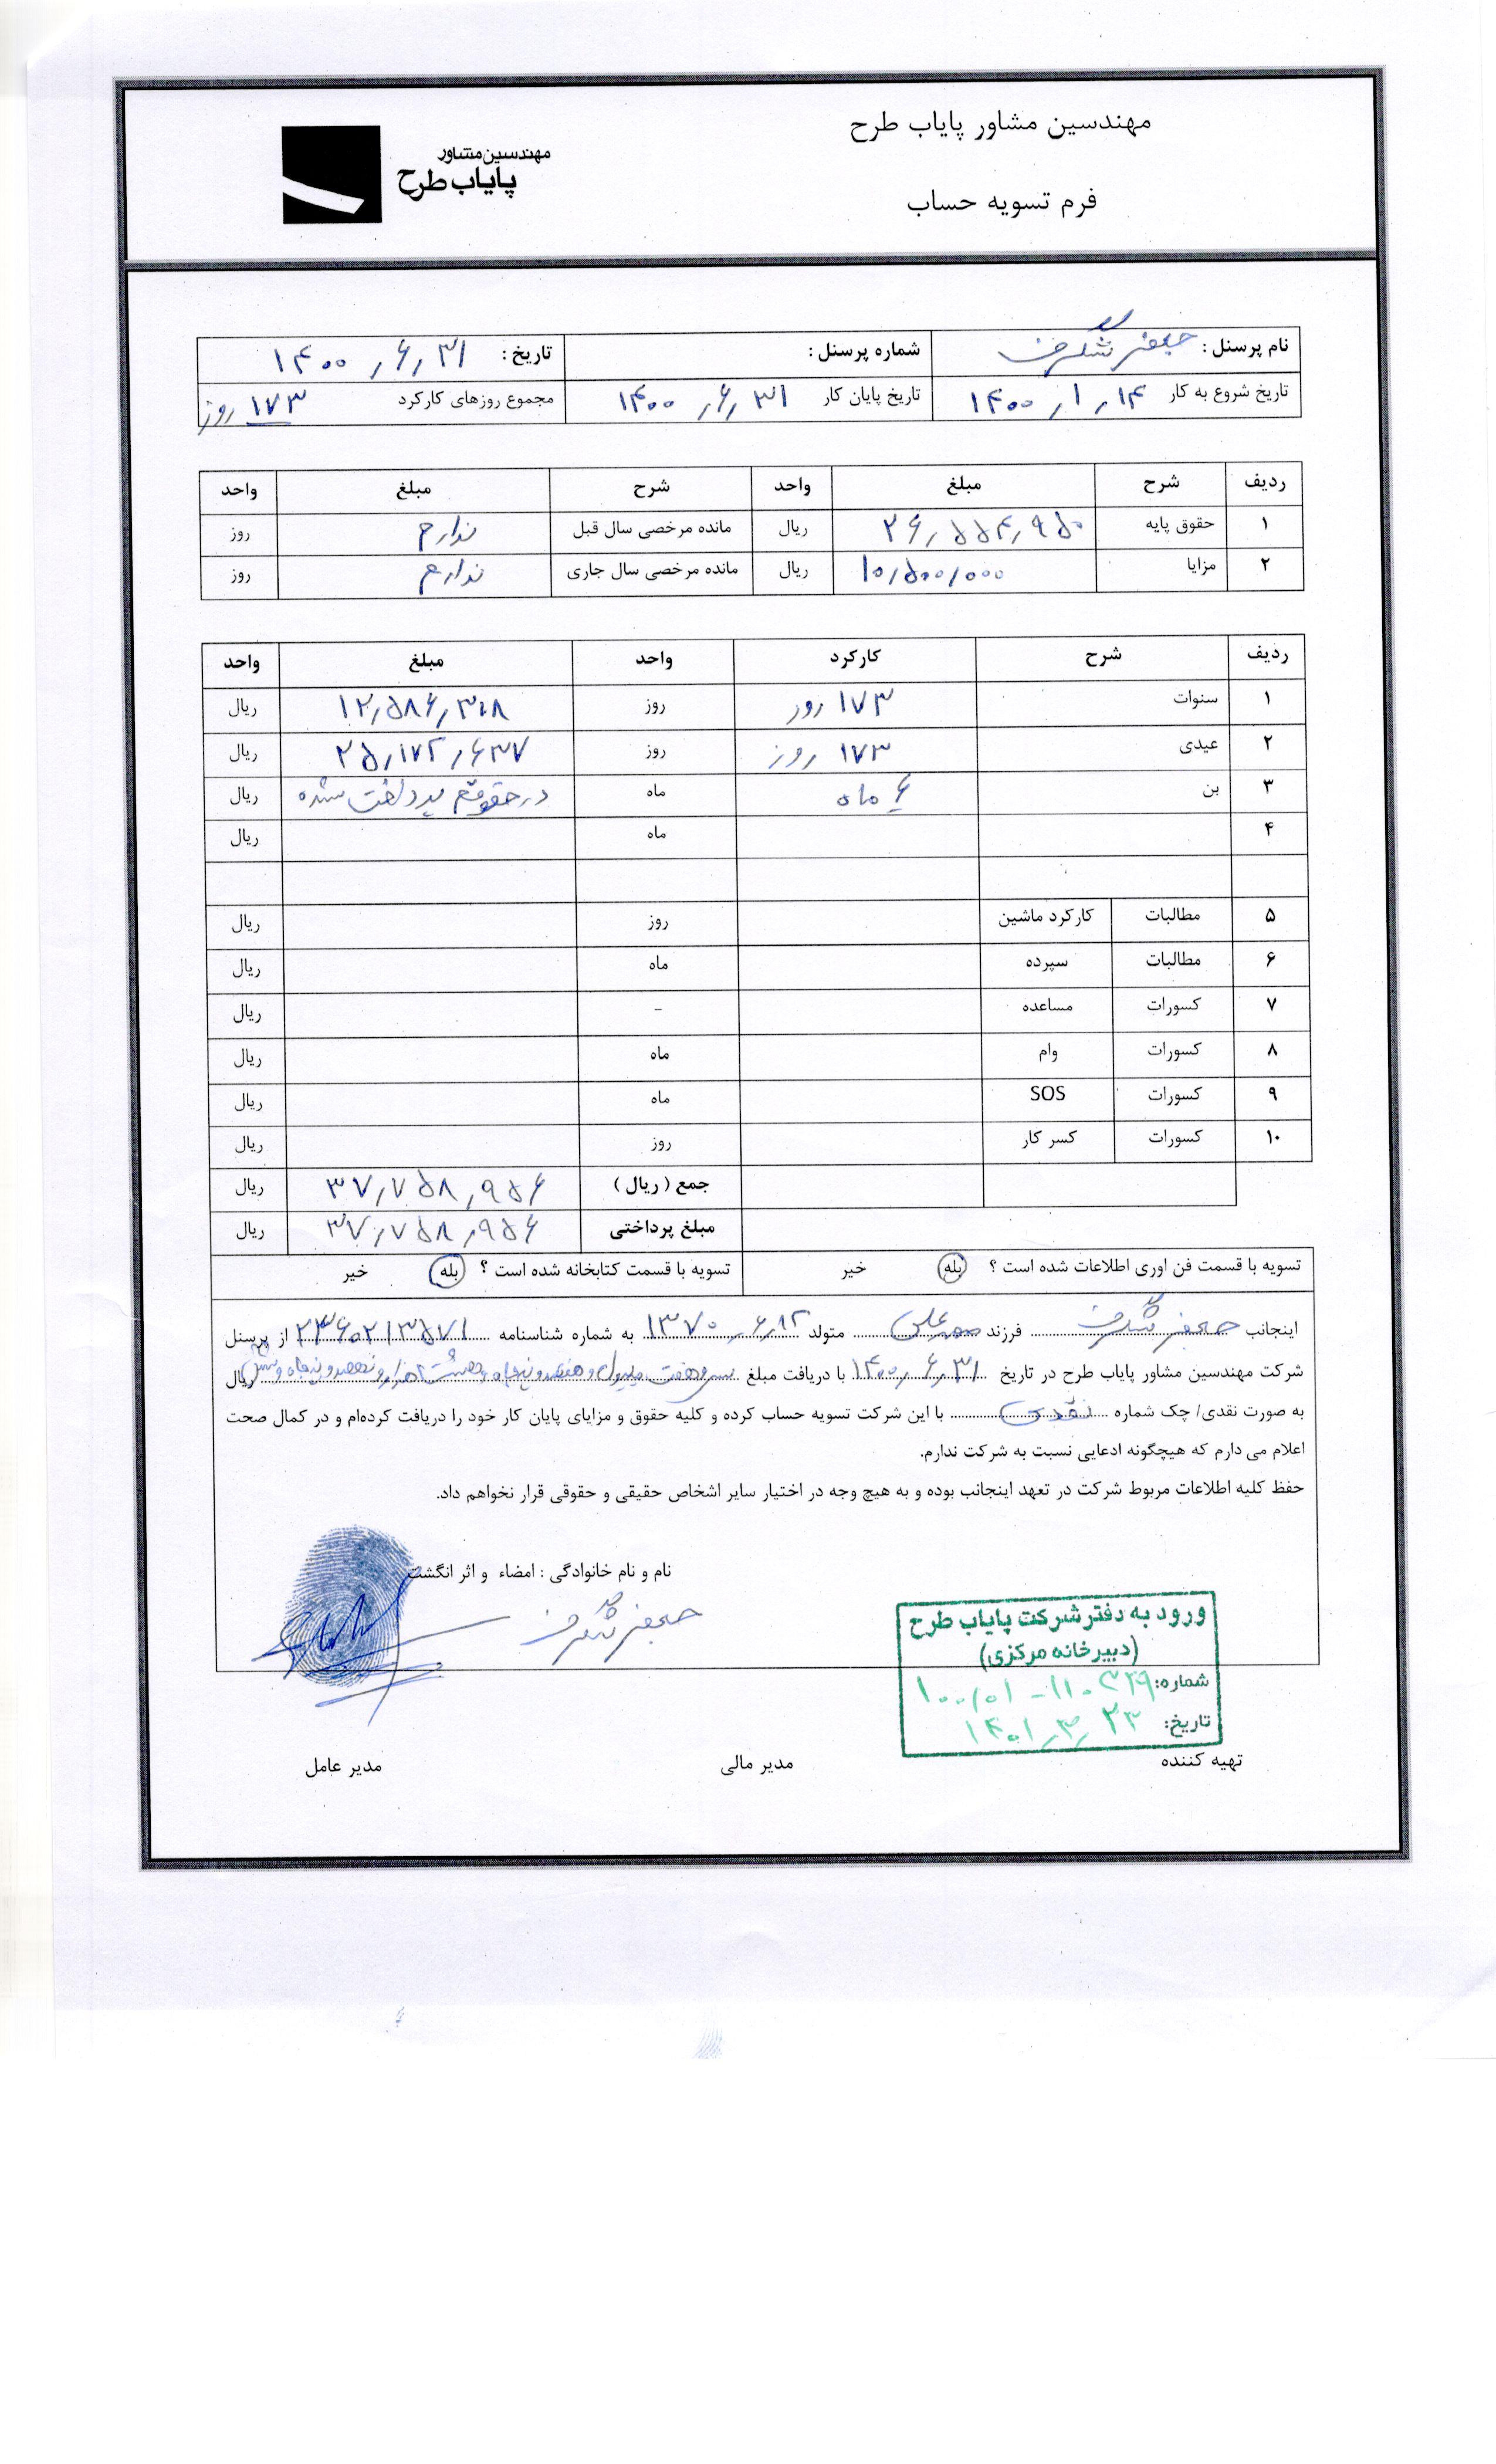 مهندسین مشاور پایاب طرح
مهندسین مشاور
پایاب طرح
فرم تسویه حساب
نام پرسنل : جعفر شگرف شماره پرسنل : تاریخ : ۱۴۰۰,۶,۳۱
تاریخ شروع به کار ۱۴۰۰,۱,۱۴ تاریخ پایان کار ۱۴۰۰,۶,۳۱ مجموع روزهای کارکرد ۱۷۳ روز
ردیف شرح مبلغ واحد شرح مبلغ واحد
۱ حقوق پایه ۲۶,۵۵۴,۹۵۰ ریال مانده مرخصی سال قبل ندارم روز
۲ مزایا ۱۰,۵۰۰,۰۰۰ ریال مانده مرخصی سال جاری ندارم روز
ردیف شرح کارکرد واحد مبلغ واحد
۱ سنوات ۱۷۳ روز روز ۱۲,۵۸۶,۳۱۸ ریال
۲ عیدی ۱۷۳ روز روز ۲۵,۱۷۲,۶۳۷ ریال
۳ بن ۶ ماه ماه در حقوقم پرداخت شده ریال
۴ ماه ریال
۵ مطالبات کارکرد ماشین روز ریال
۶ مطالبات سپرده ماه ریال
۷ کسورات مساعده - ریال
۸ کسورات وام ماه ریال
۹ کسورات SOS ماه ریال
۱۰ کسورات کسر کار روز ریال
جمع ( ریال ) ۳۷,۷۵۸,۹۵۶ ریال
مبلغ پرداختی ۳۷,۷۵۸,۹۵۶ ریال
تسویه با قسمت فن اوری اطلاعات شده است ؟ بله خیر تسویه با قسمت کتابخانه شده است ؟ بله خیر
اینجانب جعفر شگرف فرزند متولد ۱۳۷۰,۶,۱۲ به شماره شناسنامه ۲۳۶۰۲۱۳۵۷۱ از پرسنل
شرکت مهندسین مشاور پایاب طرح در تاریخ ۱۴۰۰,۶,۳۱ با دریافت مبلغ سی و هفت میلیون و هفتصد و پنجاه و هشت هزار و نهصد و پنجاه و شش ریال
به صورت نقدی/ چک شماره نقدی با این شرکت تسویه حساب کرده و کلیه حقوق و مزایای پایان کار خود را دریافت کرده‌ام و در کمال صحت
اعلام می دارم که هیچگونه ادعایی نسبت به شرکت ندارم.
حفظ کلیه اطلاعات مربوط شرکت در تعهد اینجانب بوده و به هیچ وجه در اختیار سایر اشخاص حقیقی و حقوقی قرار نخواهم داد.
نام و نام خانوادگی : امضاء و اثر انگشت
جعفر شگرف
ورود به دفتر شرکت پایاب طرح
(دبیرخانه مرکزی)
شماره:
تاریخ: ۱۴۰۱,۳,۲۳
تهیه کننده مدیر مالی مدیر عامل